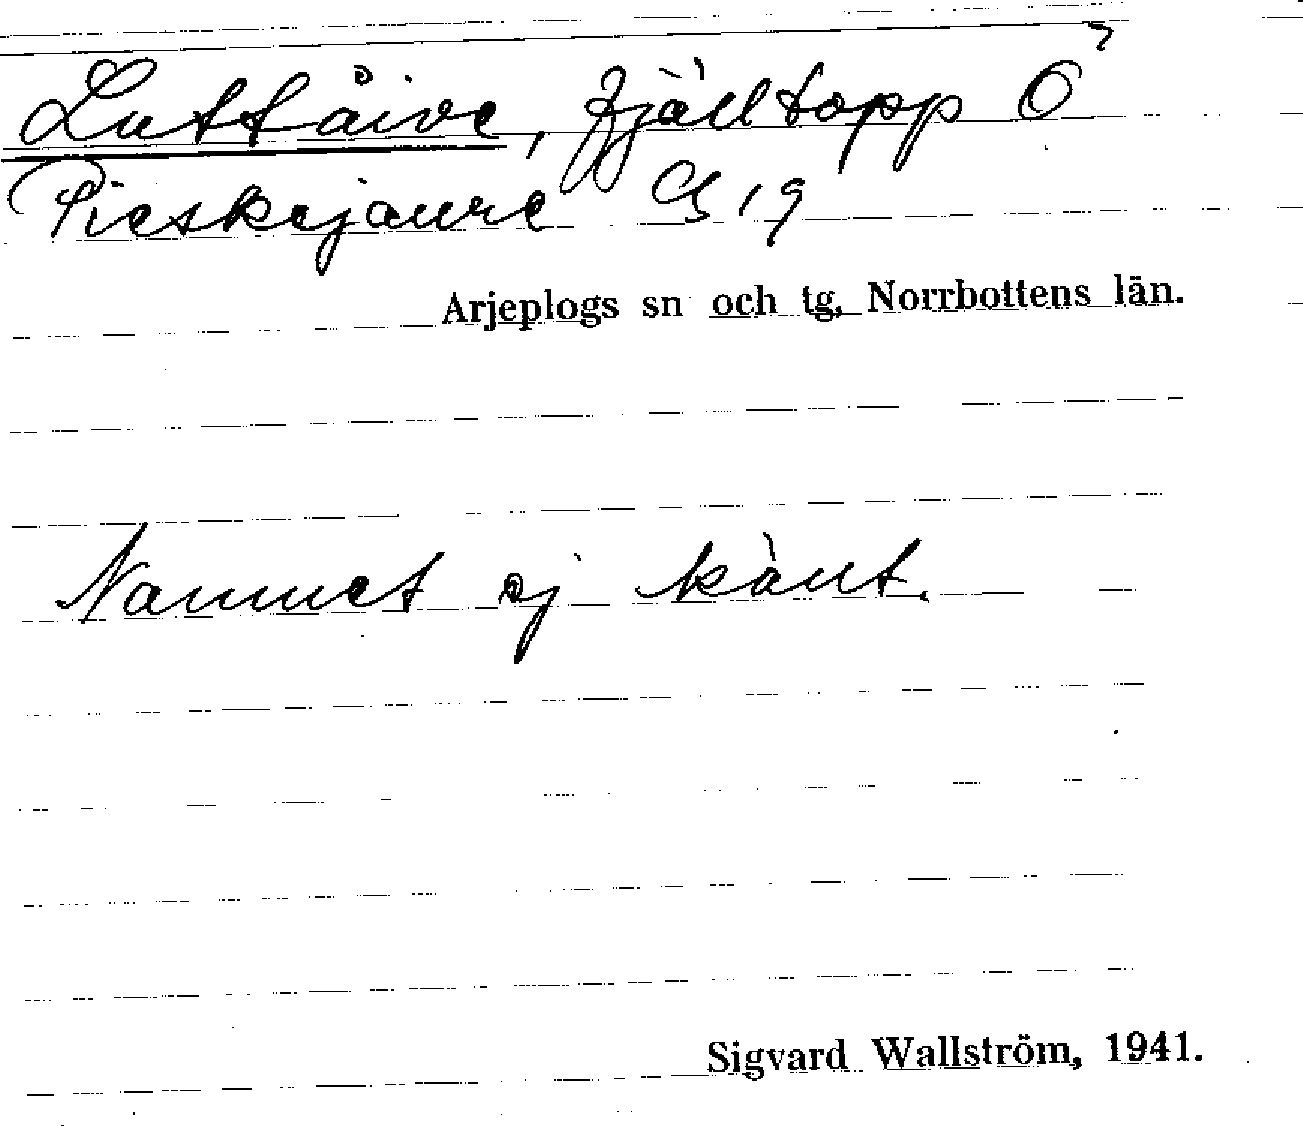 Luttåive, fjälltopp Ö
Pieskejaure G 19
Arjeplogs sn och tg, Norrbottens län.
Namnet ej känt.
Sigvard Wallström, 1941.